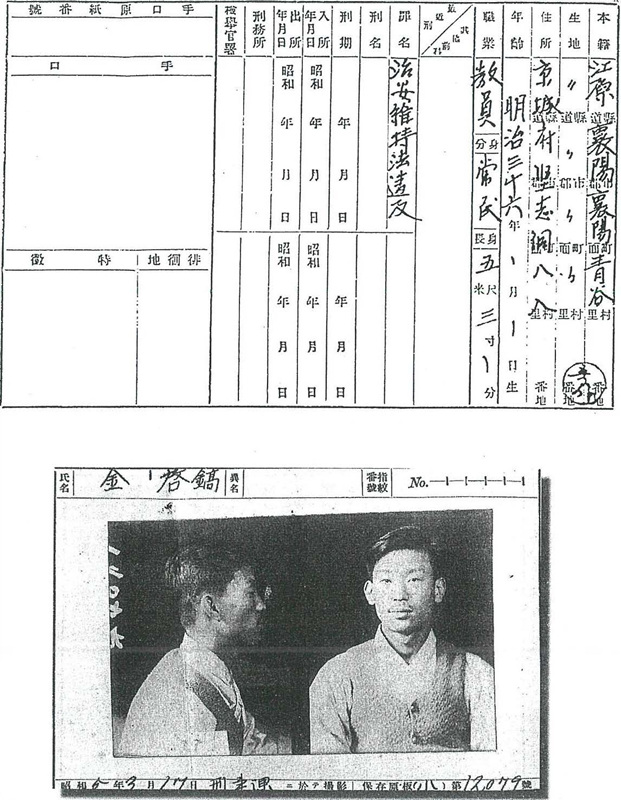 本籍 江原道縣襄陽市郡襄陽町面青谷村里 番地
生地 〃道縣〃市郡〃町面〃村里 番地
住所 京城府堅志洞八八 番地
年齡 明治三十六年1月1日生
職業 教員 身分 常民 身長 五尺三寸1分
罪名 治安維持法違反
刑名
刑期 年 月 日 年 月 日
入所年月日 昭和 年 月 日 昭和 年 月 日
出所年月日 昭和 年 月 日 昭和 年 月 日
刑務所
檢擧官署
手口原紙番號
手口
徘徊地
特徵
氏名 金啓鎬 異名 指紋番號 No.
昭和5年3月17日刑事課ニ於テ撮影 保存原板(小)第12,079號